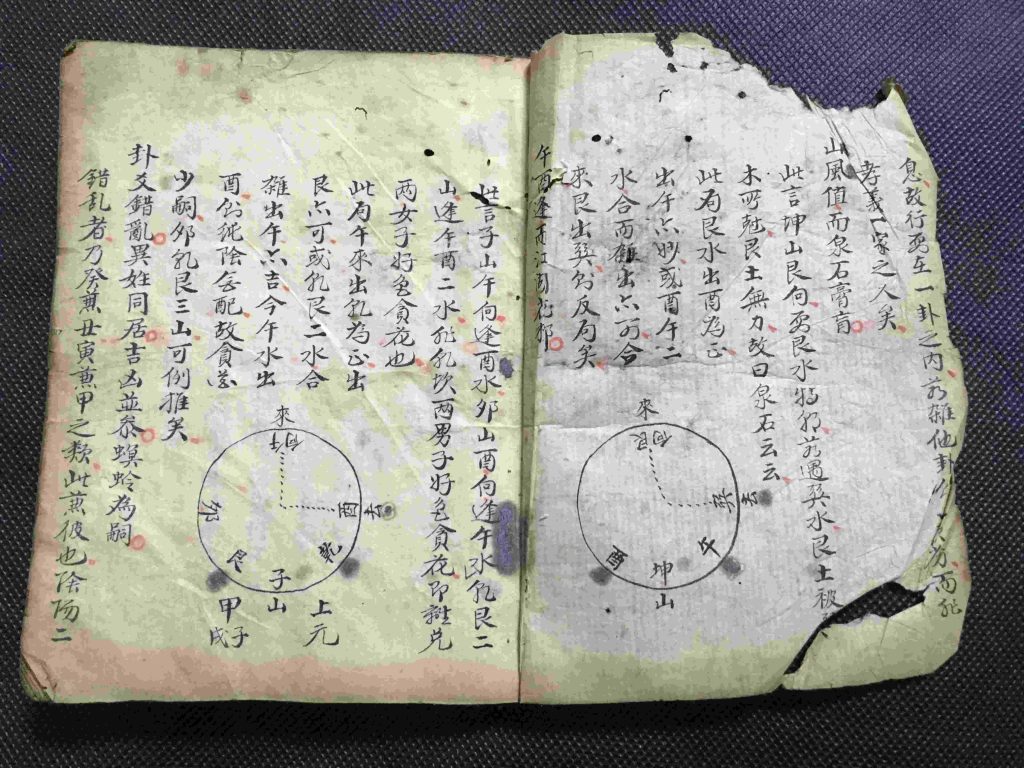 息故行要在一卦之内若雜他卦
孝義一家之人矣
山風值而泉石膏肓
此言坤山艮向要艮水特朝若遇巽水艮土被
木所尅艮土無力故曰泉石云云
此局艮水出酉為正
出午亦妙或酉午二
水合而雜出亦可合
來艮出巽為反局矣
來
向艮
巽
去
午
坤
山
酉
午酉逢而江湖花酒
此言子山午向逢酉水卯山酉向逢午水乾艮二
山逢午酉二水乾乾坎兩男子好色貪花即離兌
兩女子好色貪花也
此局午來出乾為正出
艮亦可或乾艮二水合
雜出午亦吉今午水出
酉為純陰為配故貪
少嗣卯乾艮三山可例推矣
來
向午
酉
去
乾
子
山
艮
卯
上元
甲子
戌
卦爻錯亂異姓同居吉凶並參螟蛉為嗣
錯乱者乃癸兼丑寅兼甲之類此兼彼也陰陽二